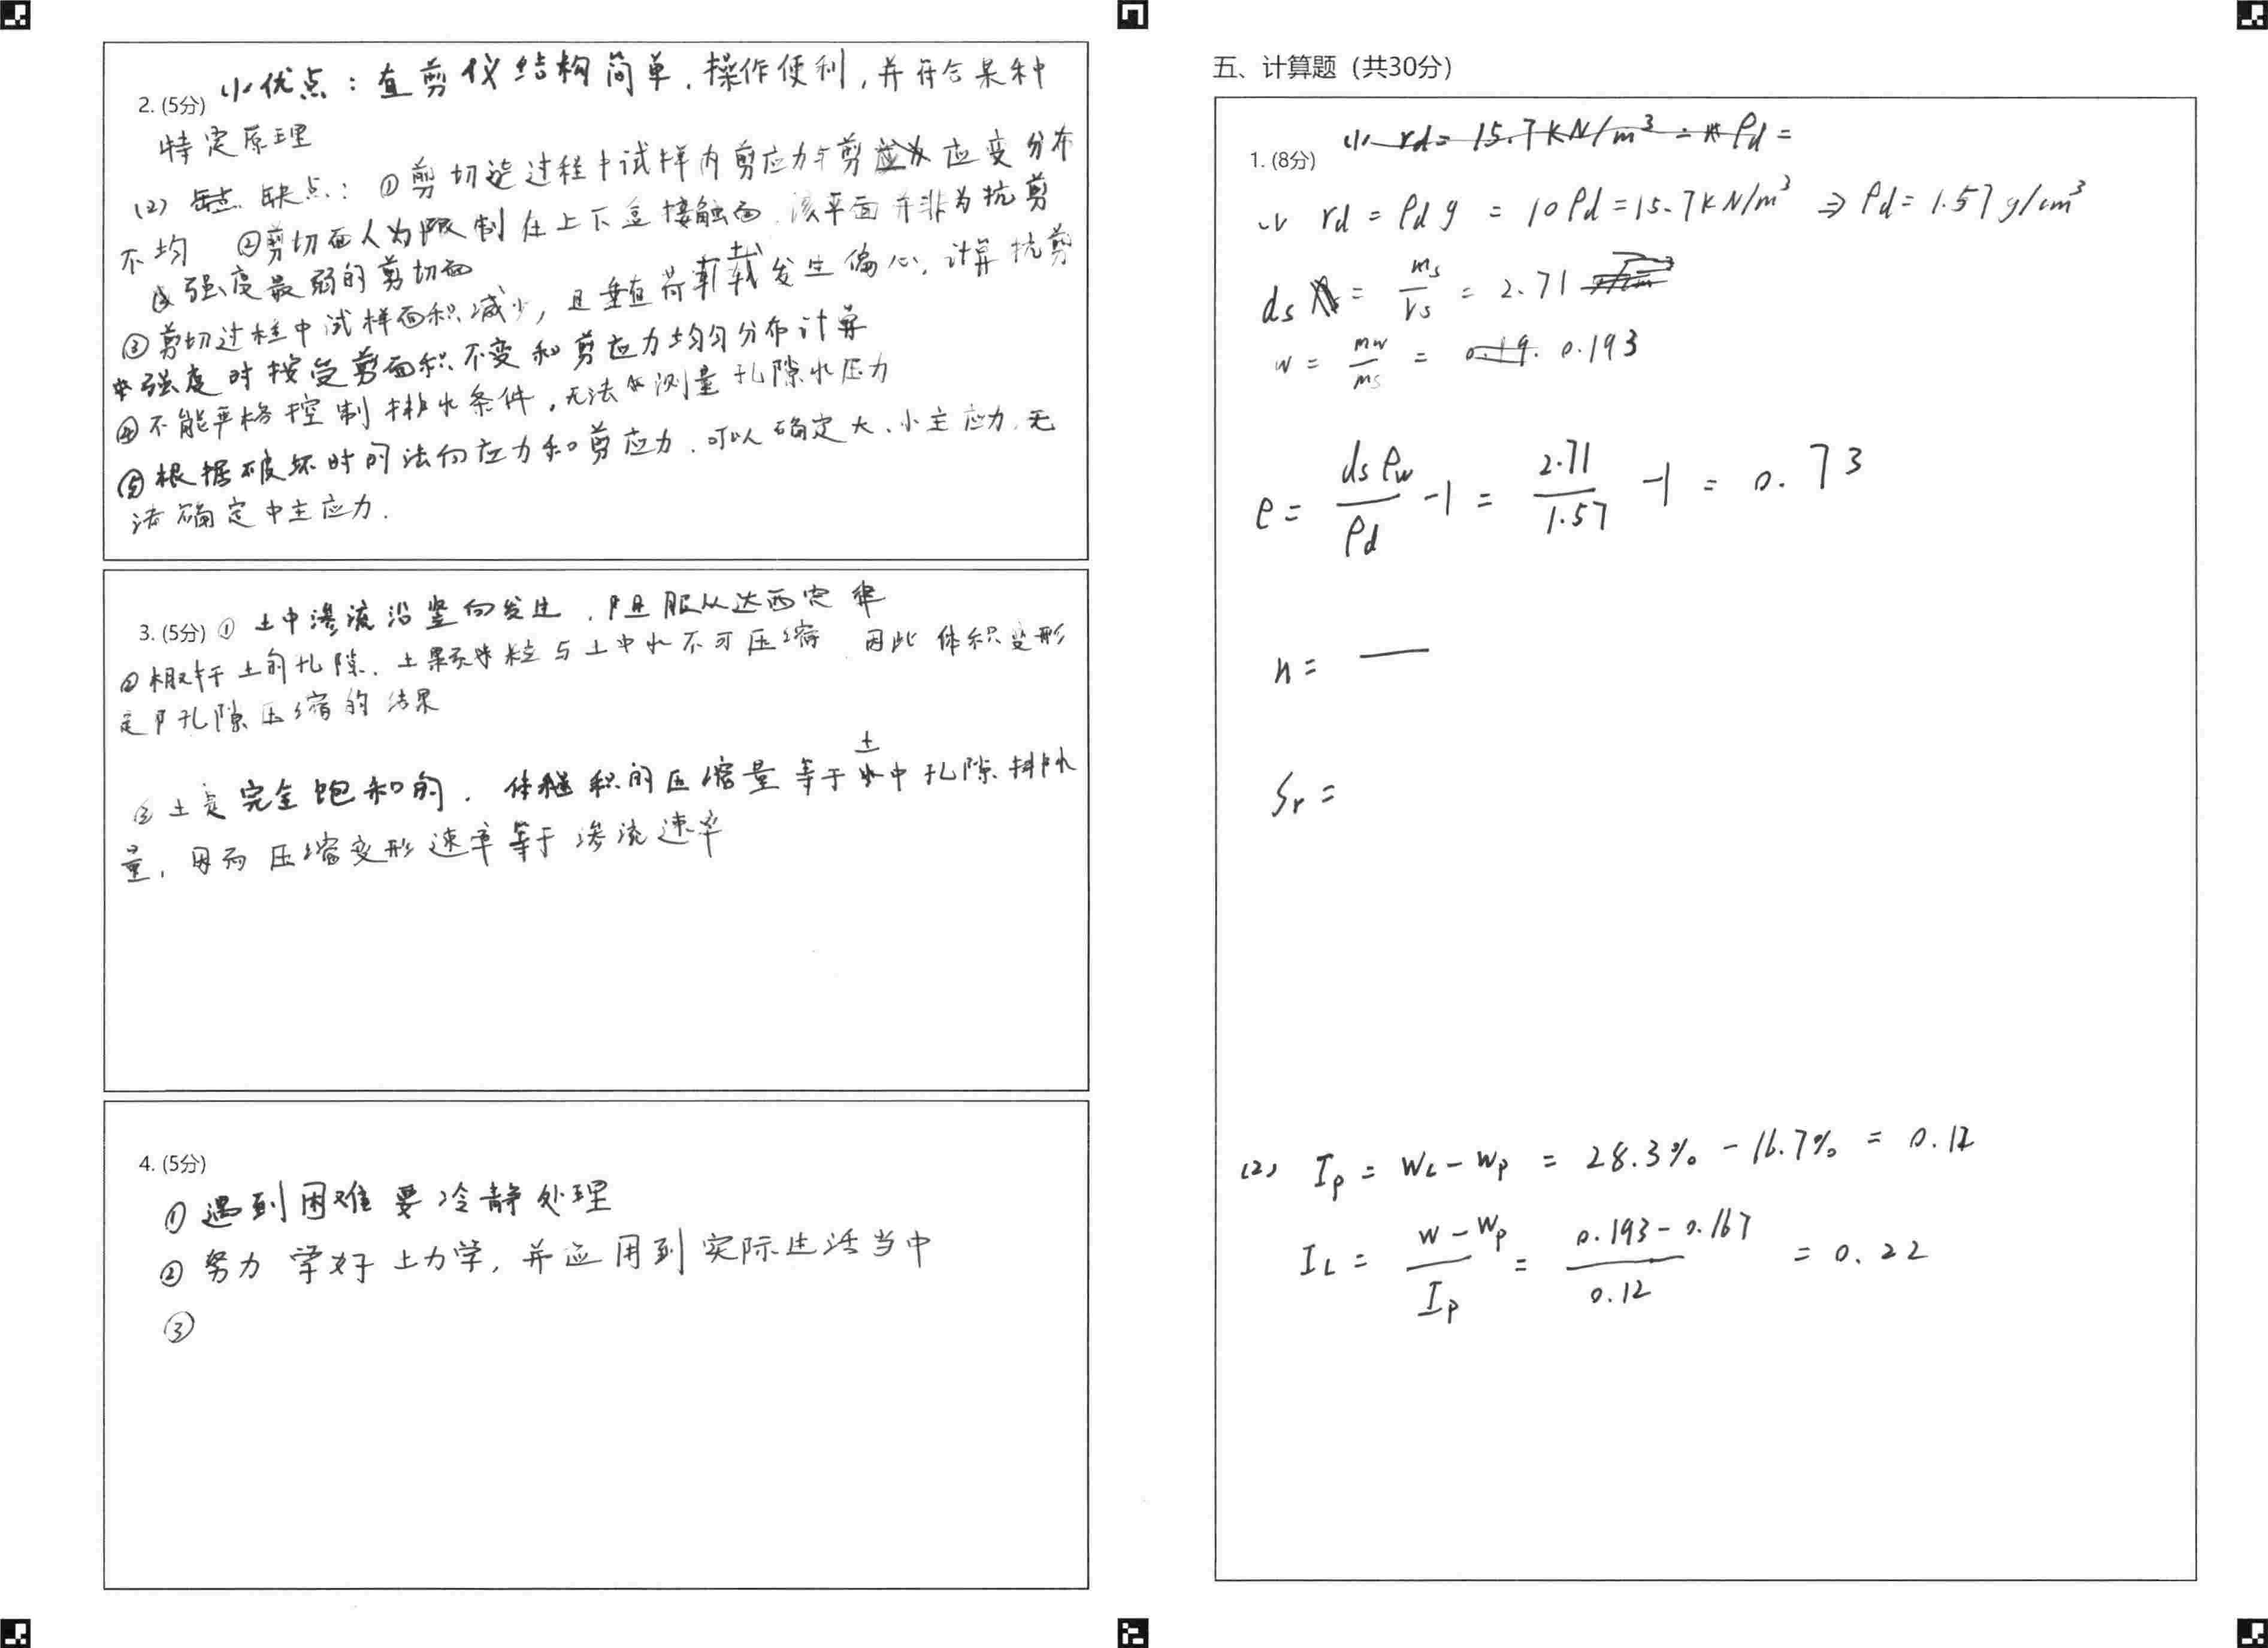 2. (5分) (1) 优点：直剪仪结构简单，操作便利，并符合某种
特定原理
(2) 缺点：①剪切过程中试样内剪应力与剪应变分布
不均 ②剪切面人为限制在上下盒接触面，该平面并非为抗剪
强度最弱的剪切面
③剪切过程中试样面积减少，且垂直荷载发生偏心，计算抗剪
强度时按受剪面积不变和剪应力均匀分布计算
④不能严格控制排水条件，无法测量孔隙水压力
⑤根据破坏时的法向应力和剪应力，可以确定大、小主应力，无
法确定中主应力.
3. (5分) ① 土中渗流沿竖向发生，且服从达西定律
②相对于土的孔隙，土颗粒与土中水不可压缩 因此体积变形
是孔隙压缩的结果
③土是完全饱和的，体积的压缩量等于土中孔隙排水
量，因而压缩变形速率等于渗流速率
4. (5分)
①遇到困难要冷静处理
②努力学好土力学，并应用到实际生活当中
③
五、计算题（共30分）
1. (8分) (1) rd = 15.7KN/m³ = ρd =
(1) rd = ρd g = 10ρd = 15.7KN/m³ ⇒ ρd = 1.57g/cm³
ds = ms/Vs = 2.71
w = mw/ms = 0.19. 0.193
e = dsρw/ρd -1 = 2.71/1.57 -1 = 0.73
n = —
Sr =
(2) Ip = WL - Wp = 28.3% - 16.7% = 0.12
IL = (W - Wp)/Ip = (0.193 - 0.167)/0.12 = 0.22